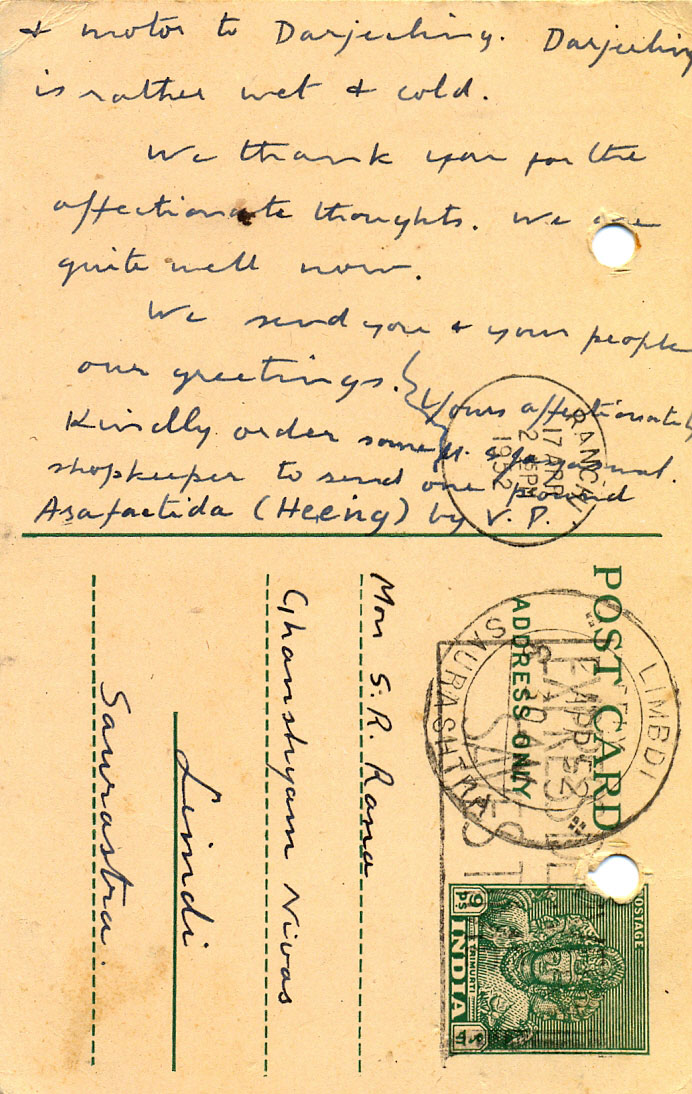 & motor to Darjeeling. Darjeeling
is rather wet & cold.
We thank you for the
affectionate thoughts. We are
quite well now.
We send you & your people
our greetings.
Yours affectionately
Kindly order some
shopkeeper to send one pound
Asafaetida (Heeng) by V. P.
RANCHI
17 APR
1952
POST CARD
ADDRESS ONLY
LIMBDI
SAURASHTRA
20 APR 52
EXPRESS
SAVES
POSTAGE
9 ps
TRIMURTI
INDIA
Mon S. R. Rana
Ghanshyam Nivas
Limdi
Saurastra.